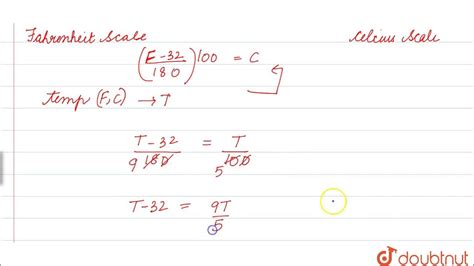 Fahrenheit Scale Celcius Scale
(F-32/180)100 = C
temp (F, C) → T
T-32/9 180 = T/5 100
T-32 = 9T/5
doubtnut